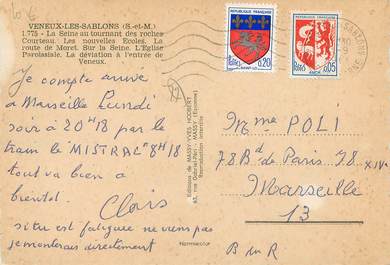 VENEUX-LES-SABLONS (S.-et-M.)
1.775 - La Seine au tournant des roches
Courteau. Les nouvelles Écoles. La
route de Moret. Sur la Seine. L'Église
Paroissiale. La déviation à l'entrée de
Veneux.
Je compte arrivé
a Marseille Lundi
soir à 20H18 par le
tram le MISTRAL 8H18
tout va bien a
bientot.
Clois
si tu est fatiguée ne viens pas
je monterais directement
Éditions de MASSY-YVES HOCBERT
Reproduction interdite
REPUBLIQUE FRANÇAISE
POSTES
0,20
REPUBLIQUE FRANÇAISE
POSTES
0,05
AUCH
Mme POLI
78 Bd de Paris 78
Marseille
13
B du R